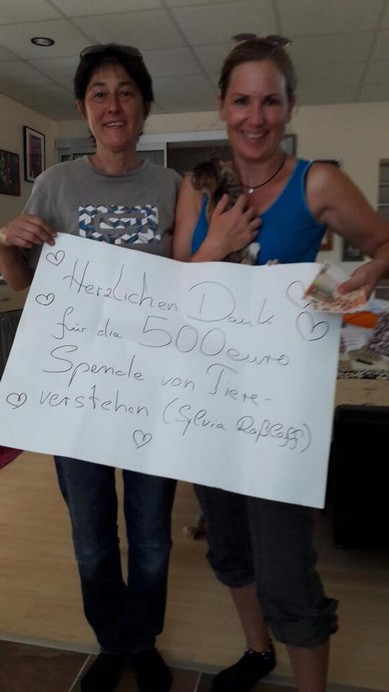 Herzlichen Dank
für die 500euro
Spende von Tiere-
verstehen (Sylvia Raßloff)